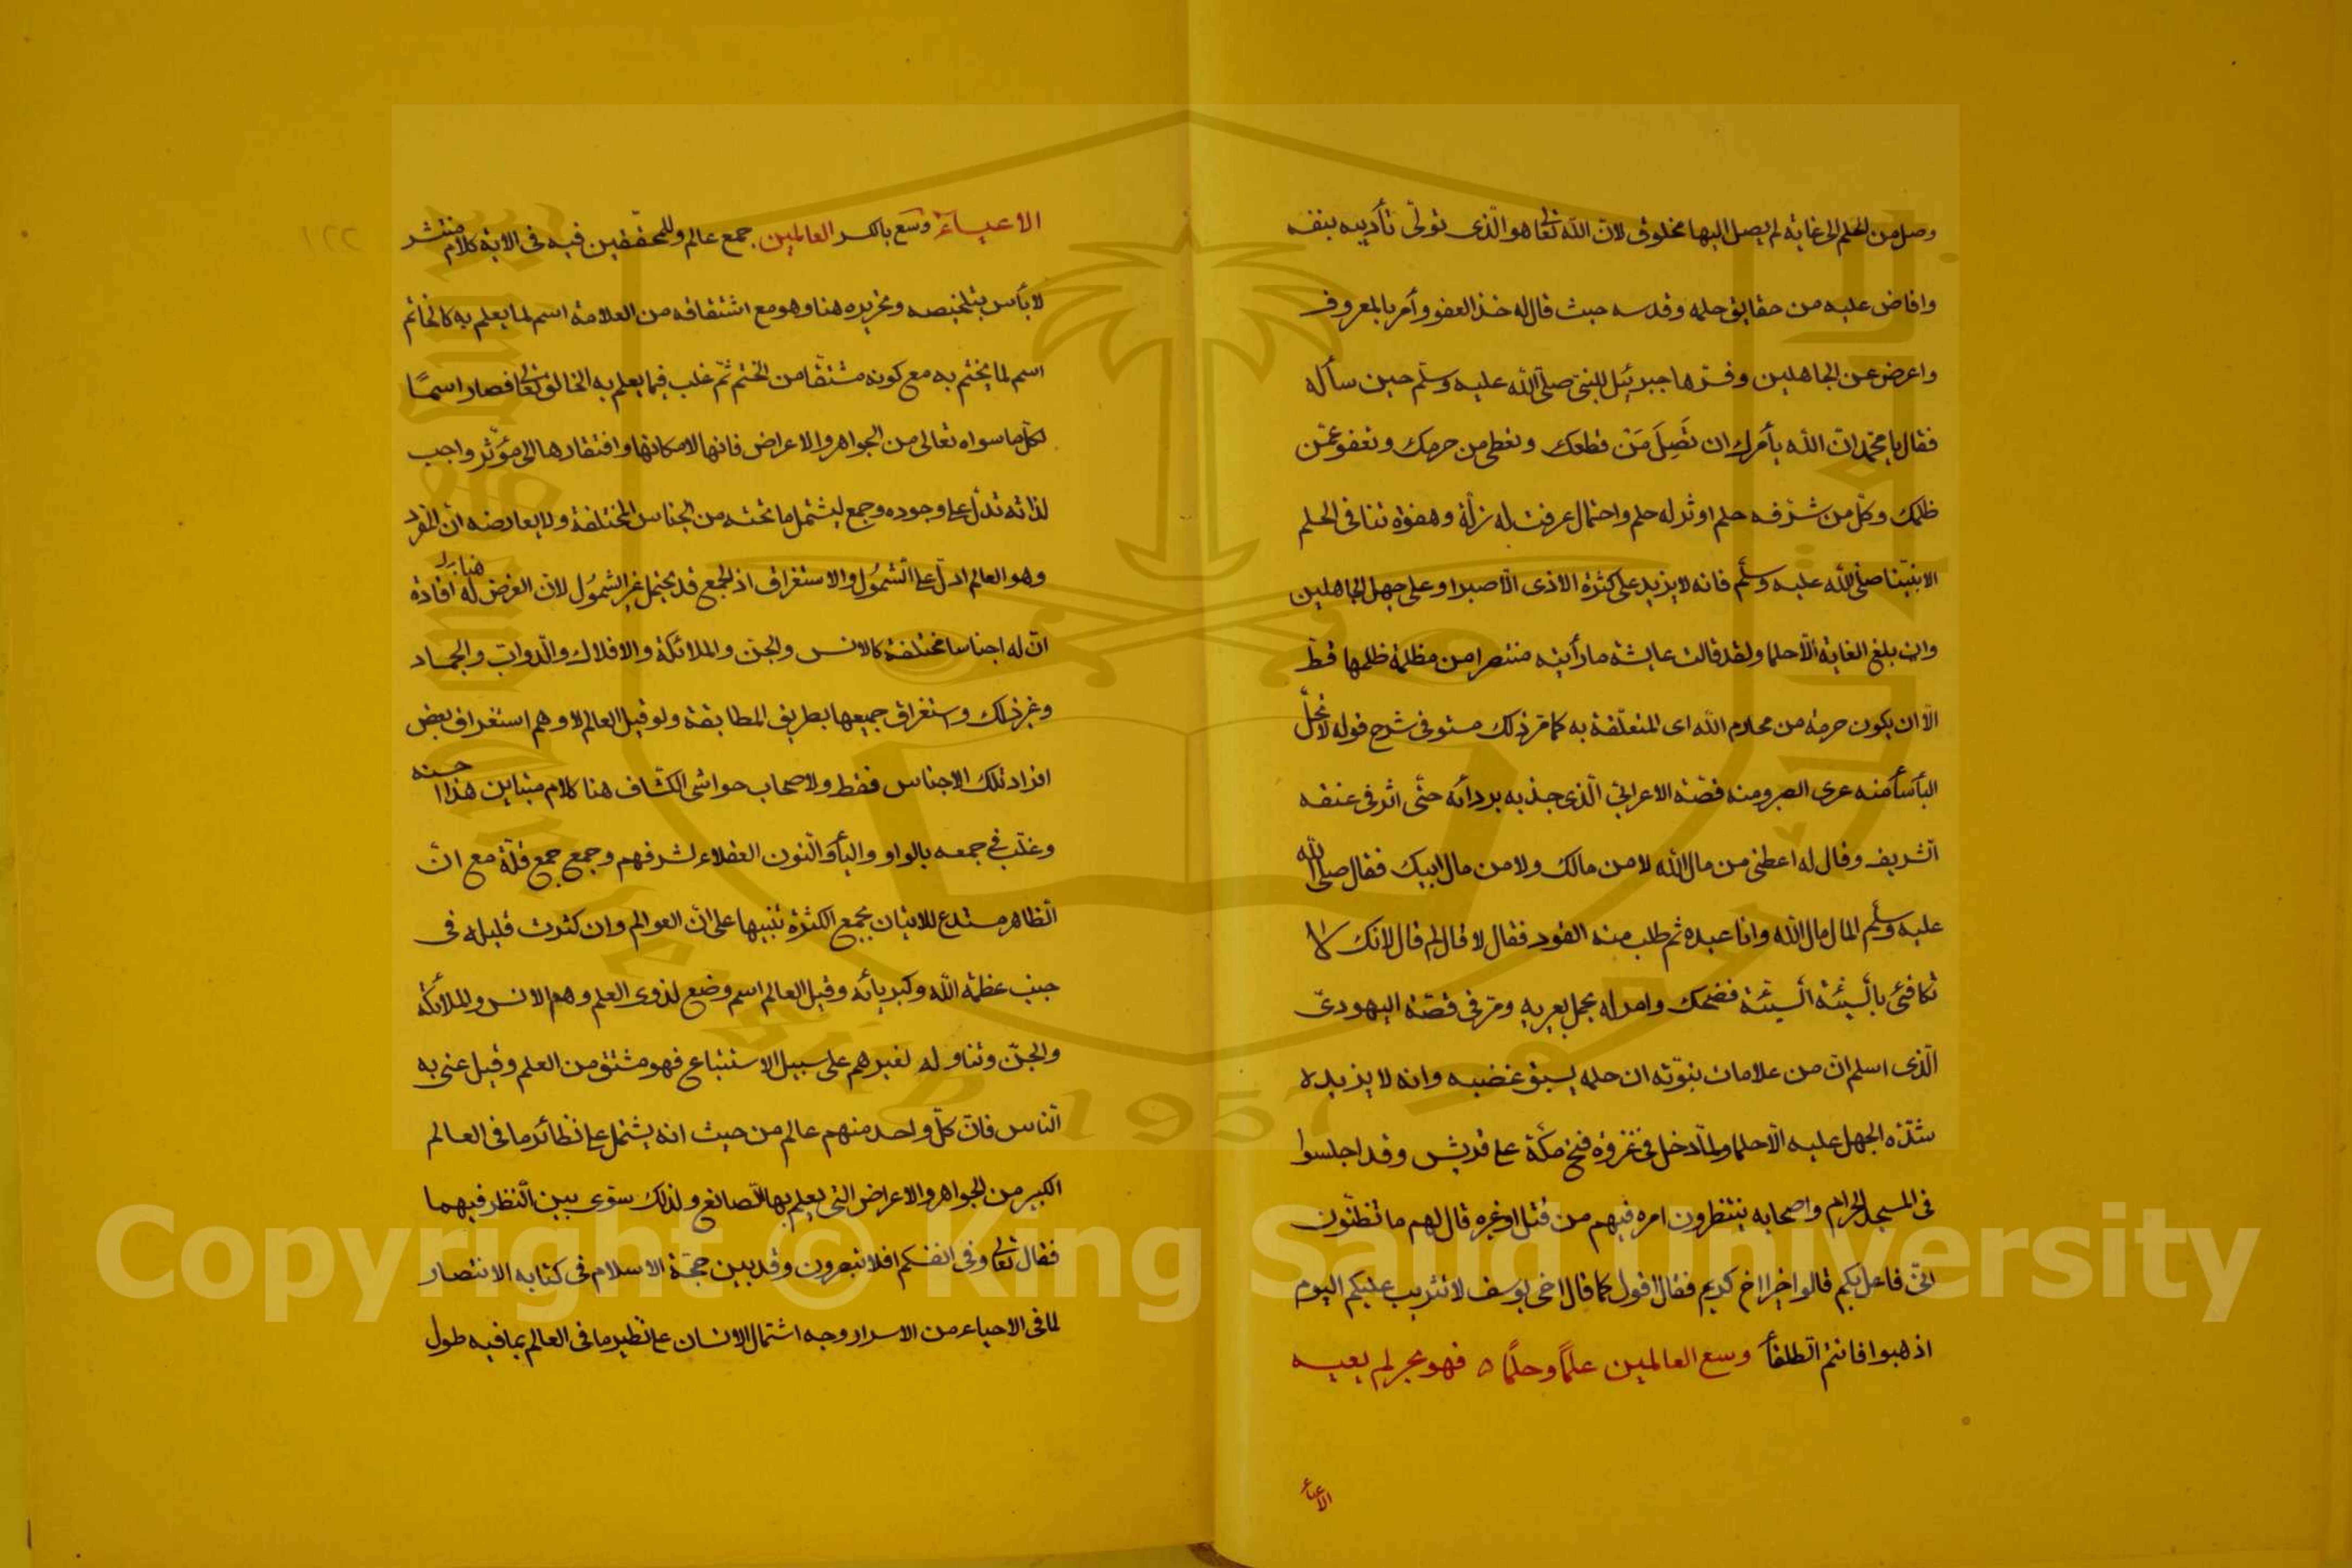 وصل من الحلم الى غاية لم يصل اليها مخلوق لان الله تعالى هو الذى تولى تأديبه بنفسه
وافاض عليه من حقايق حلمه وقدسه حيث قال له خذ العفو وأمر بالمعروف
واعرض عن الجاهلين وفسرها جبرئيل للنبى صلى الله عليه وسلم حين سأله
فقال يا محمد ان الله يأمرك ان تَصِلَ مَنْ قطعك وتعطى من حرمك وتعفو عمّن
ظلمك وكل من شرفه حلم او ثر له حلم واحتمال عرفت له زلة وهفوة تنافى الحلم
الا نبينا صلى الله عليه وسلم فانه لا يزيد على كثرة الاذى الا صبرا وعلى جهل الجاهلين
وان بلغ الغاية الا حلما ولقد قالت عايشة ما رأيته منتصرا من مظلمة ظلمها قط
الا ان يكون حرمة من محارم الله اى المتعلقة به كما مر ذلك مستوفى شرح قوله لا تحل
البأسأ منه عرى الصبر ومنه قصة الاعرابي الذى جذبه بردائه حتى اثر فى عنقه
الشريف وقال له اعطنى من مال الله لا من مالك ولا من مال ابيك فقال صلى الله
عليه وسلم المال مال الله وانا عبده ثم طلب منه القود فقال لا قال لم قال لانك لا
تكافئى بالسيئة السيئة فضحك وامر له بحمل بعيريه ومر فى قصة اليهودى
الذى اسلم ان من علامات نبوته ان حلمه يسبق غضبه وانه لا يزيده
شدة الجهل عليه الا حلما ولما دخل فى غزوة فتح مكة على قريش وقد اجلسوا
فى المسجد الحرام واصحابه ينتظرون امره فيهم من قتل او غيره قال لهم ما تظنون
انى فاعل بكم قالوا خيرا اخ كريم فقال اقول كما قال اخى يوسف لا تثريب عليكم اليوم
اذهبوا فانتم الطلقأ وسع العالمين علمًا وحلمًا ه فهو بحر لم يعيه
الاعبأ
الاعبأ وسع بالكسر العالمين جمع عالم وللمحققين فيه فى الاية كلام منتشر
لا بأس بتلخيصه وتحريره هنا وهو مع اشتقاقه من العلامة اسم لما يعلم به كالخاتم
اسم لما يختم به مع كونه مشتقا من الختم ثم غلب فيما يعلم به الخالق تعالى فصار اسمًا
لكل ما سواه تعالى من الجواهر والاعراض فانها لامكانها وافتقارها الى مؤثر واجب
لذاته تدل على وجوده وجمع ليشتمل ما تحته من الجناس المختلفة ولا يعارضه ان المفرد
وهو العالم ادل على الشمول والاستغراق اذ الجمع قد يحتمل غير الشمول لان الغرض له هنا افادة
ان له اجناسا مختلفة كالانس والجن والملائكة والافلاك والدواب والجماد
وغير ذلك واستغراق جميعها بطريق المطابقة ولو قيل العالم لاوهم استغراق بعض
افراد تلك الاجناس فقط ولاصحاب حواشى الكشاف هنا كلام متباين هذا احسنه
وغلب فى جمعه بالواو والياء والنون العقلاء لشرفهم وجمع جمع قلة مع ان
الظاهر مستدع للاتيان بجمع الكثرة تنبيها على ان العوالم وان كثرت قليله فى
جنب عظمة الله وكبريائه وقيل العالم اسم وضع لذوى العلم وهم الانس والملائكة
والجن وتناوله لغيرهم على سبيل الاستتباع فهو مشتق من العلم وقيل عنى به
الناس فان كل واحد منهم عالم من حيث انه يشتمل على نظائر ما فى العالم
الكبير من الجواهر والاعراض التى يعلم بها الصانع ولذلك سوى بين النظر فيهما
فقال تعالى وفى انفسكم افلا تبصرون وقد بين حجة الاسلام فى كتابه الانتصار
لما فى الاحياء من الاسرار وجه اشتمال الانسان على نظير ما فى العالم بما فيه طول
Copyright © King Saud University
King Saud University
1957